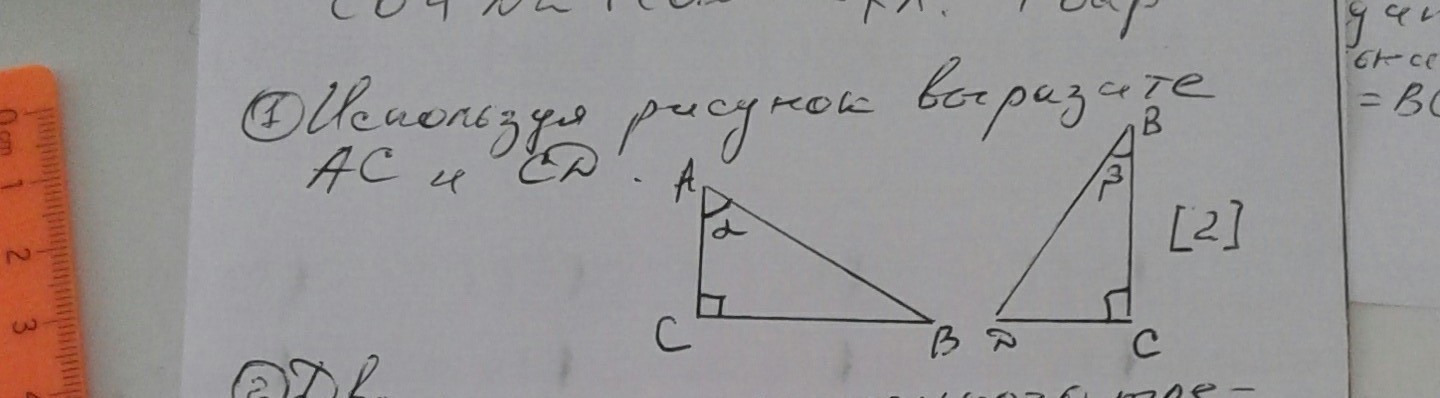 ① Используя рисунок выразите
AC и CD.
A
α
C
B
B
β
D
C
[2]
= BC
0 cm
1
2
3